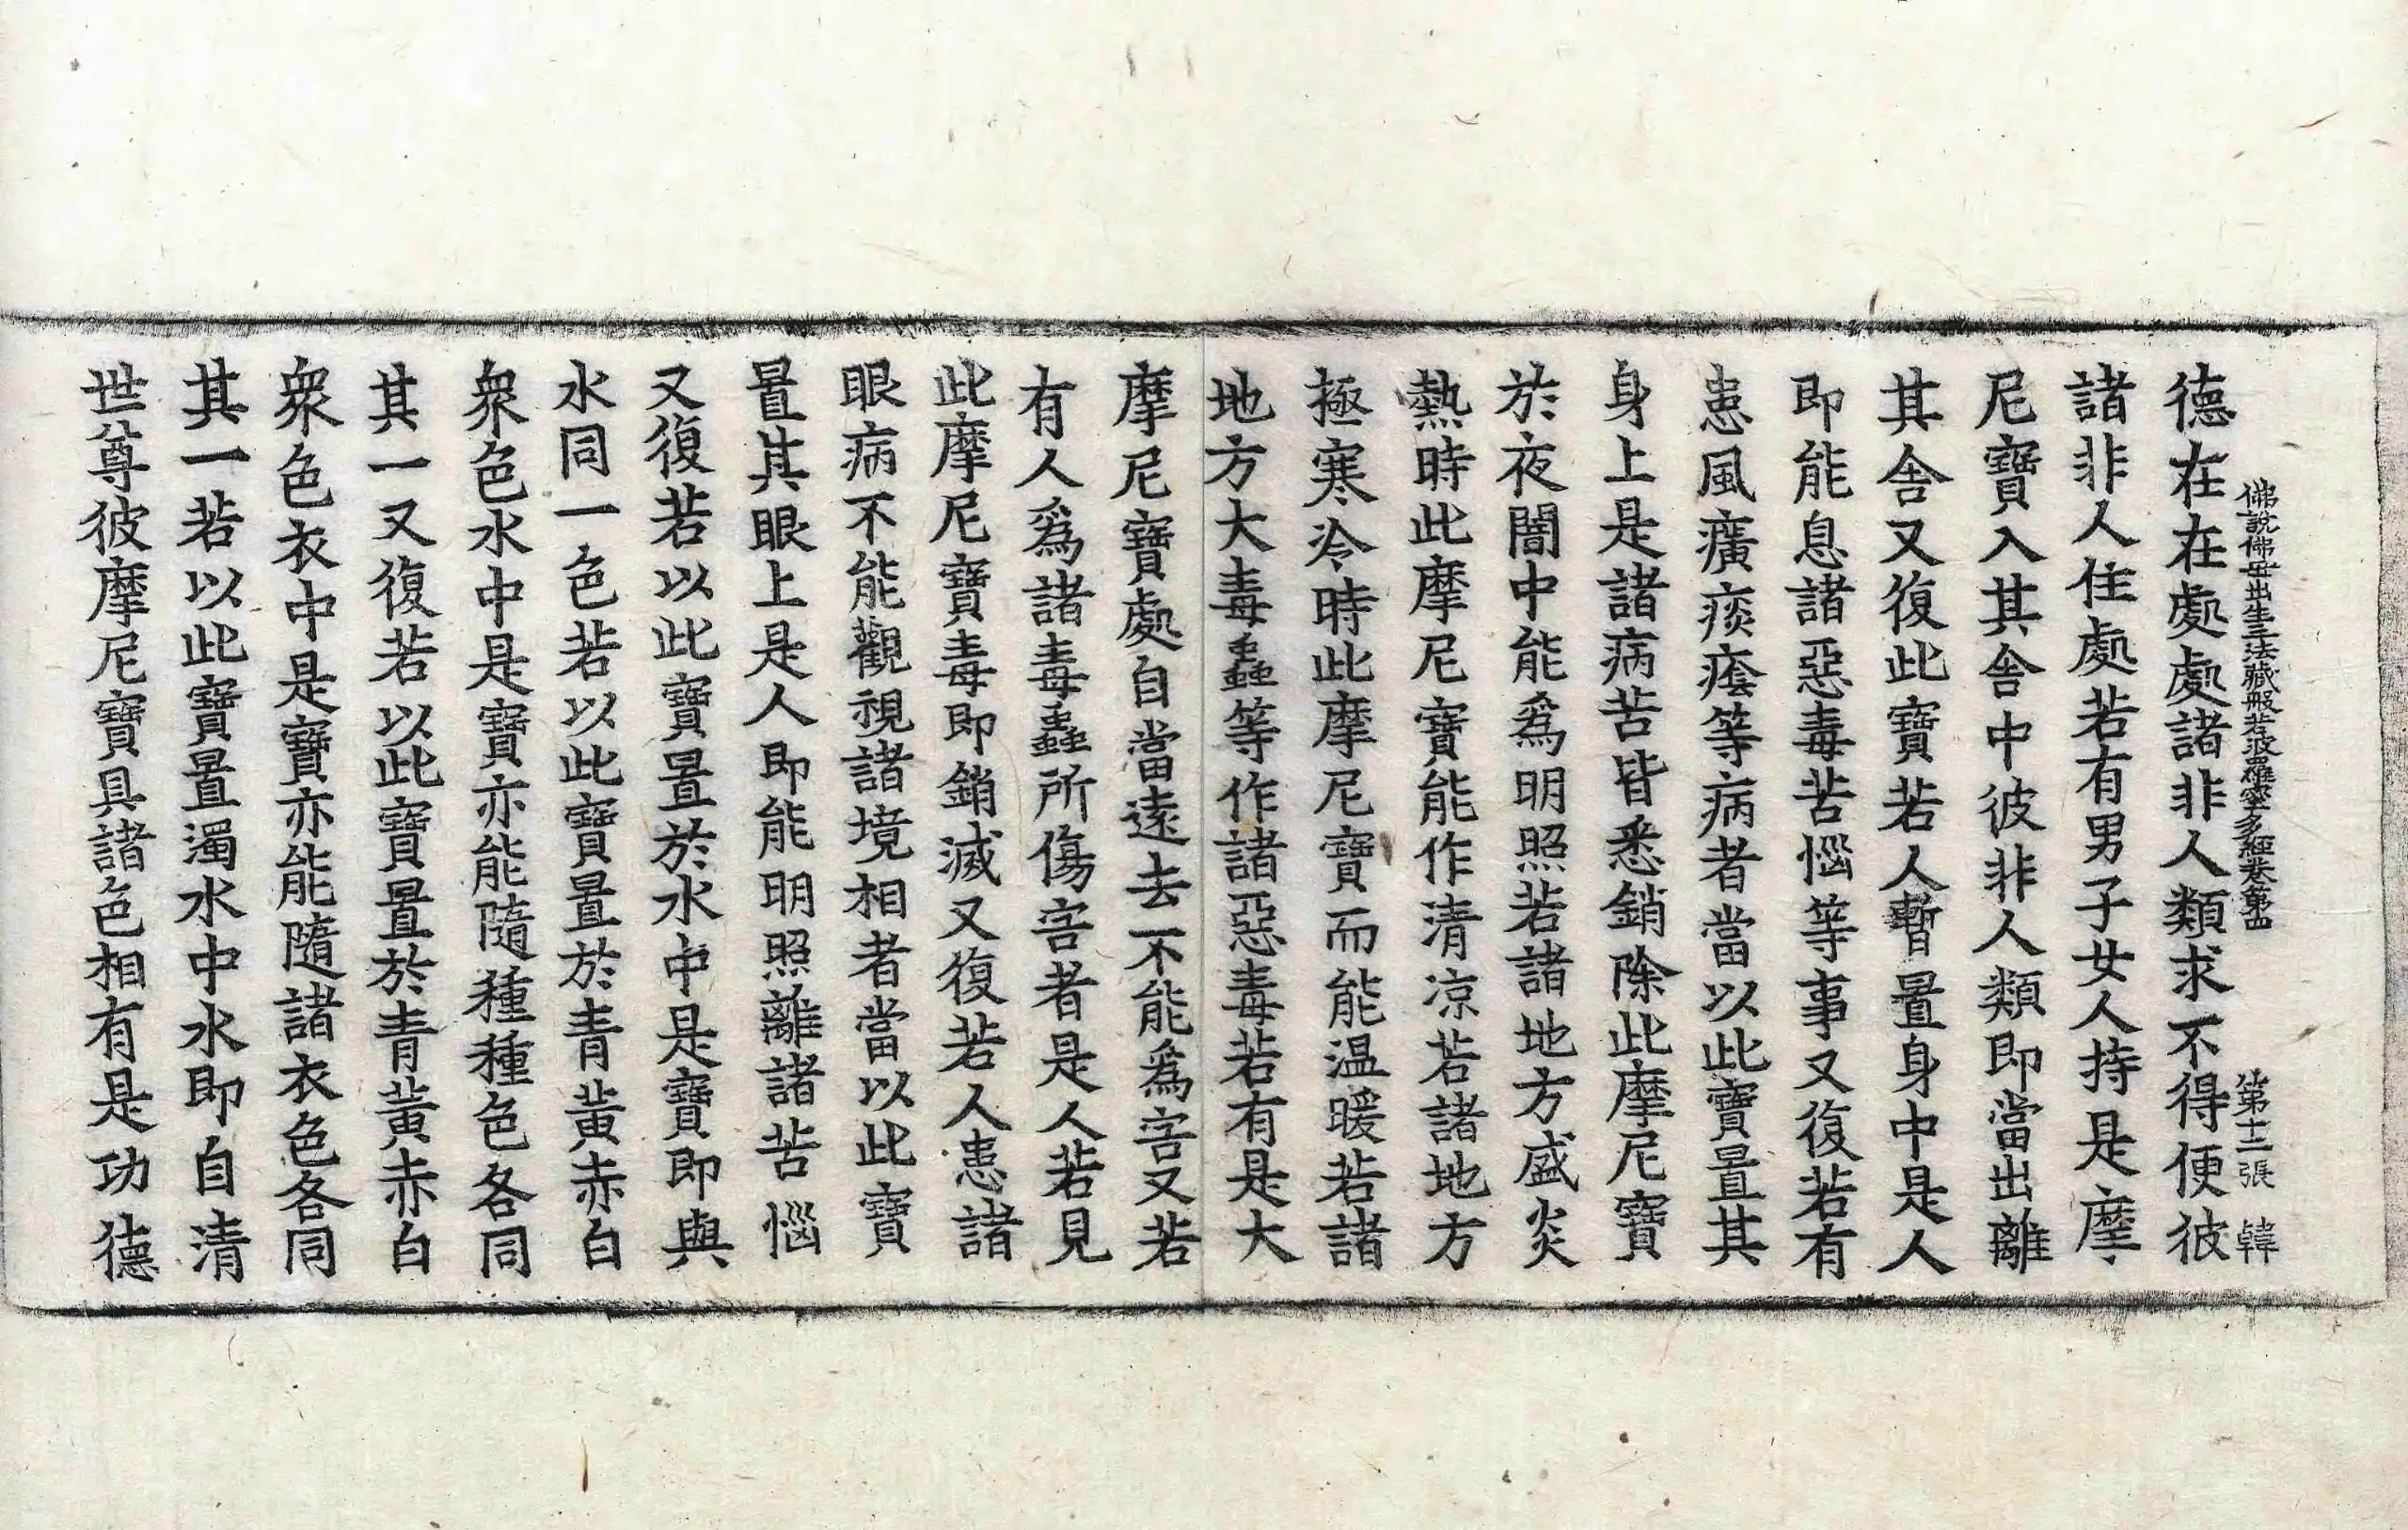 佛說佛母出生三法藏般若波羅蜜多經卷第四 第十二張 韓
德在在處處諸非人類求不得便彼
諸非人住處若有男子女人持是摩
尼寶入其舍中彼非人類即當出離
其舍又復此寶若人暫置身中是人
即能息諸惡毒苦惱等事又復若有
患風癀痰癊等病者當以此寶置其
身上是諸病苦皆悉銷除此摩尼寶
於夜闇中能爲明照若諸地方盛炎
熱時此摩尼寶能作清涼若諸地方
極寒冷時此摩尼寶而能温暖若諸
地方大毒蟲等作諸惡毒若有是大
摩尼寶處自當遠去不能爲害又若
有人爲諸毒蟲所傷害者是人若見
此摩尼寶毒即銷滅又復若人患諸
眼病不能觀視諸境相者當以此寶
置其眼上是人即能明照離諸苦惱
又復若以此寶置於水中是寶即與
水同一色若以此寶置於青黃赤白
衆色水中是寶亦能隨種種色各同
其一又復若以此寶置於青黃赤白
衆色衣中是寶亦能隨諸衣色各同
其一若以此寶置濁水中水即自清
世尊彼摩尼寶具諸色相有是功德